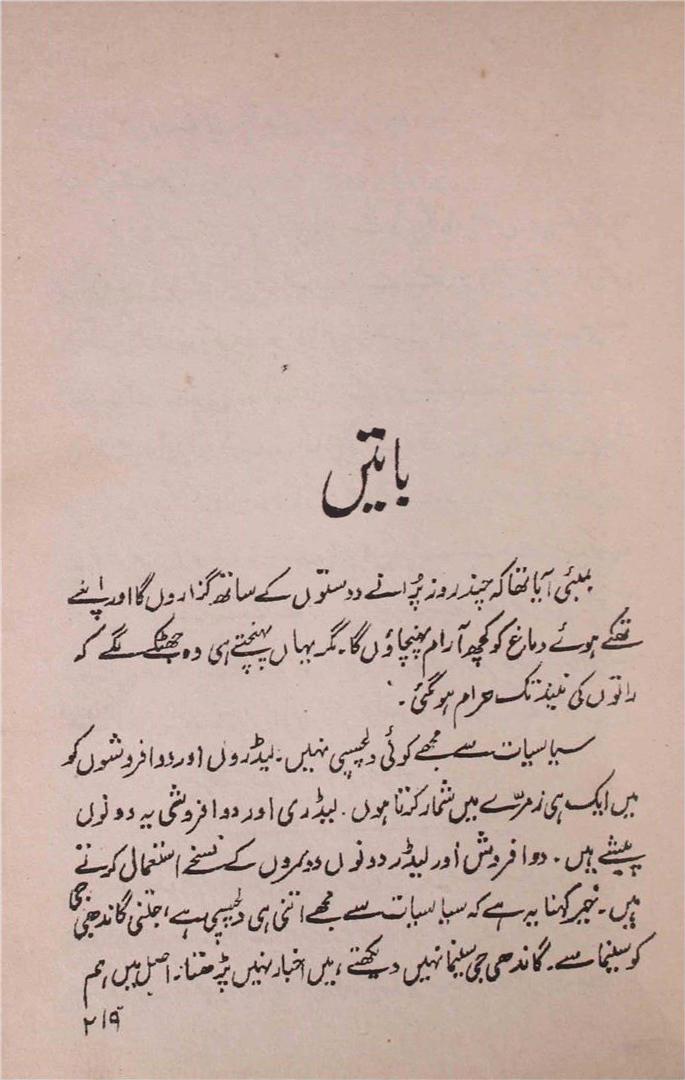 باتیں
بمبئی آیا تھا کہ چند روز پُرانے دوستوں کے ساتھ گزاروں گا اور اپنے
تھکے ہوئے دماغ کو کچھ آرام پہنچاؤں گا۔ مگر یہاں پہنچتے ہی وہ جھٹکے لگے کہ
راتوں کی نیند تک حرام ہو گئی۔
سیاسیات سے مجھے کوئی دلچسپی نہیں۔ لیڈروں اور دوا فروشوں کو
میں ایک ہی زمرّے میں شمار کرتا ہوں۔ لیڈری اور دوا فروشی یہ دونوں
پیشے ہیں۔ دوا فروش اور لیڈر دونوں دوسروں کے نسخے استعمال کرتے
ہیں۔ خیر کہنا یہ ہے کہ سیاسیات سے مجھے اتنی ہی دلچسپی ہے، جتنی گاندھی جی
کو سینما سے۔ گاندھی جی سینما نہیں دیکھتے، میں اخبار نہیں پڑھتا۔ اصل میں ہم
۲۱۹